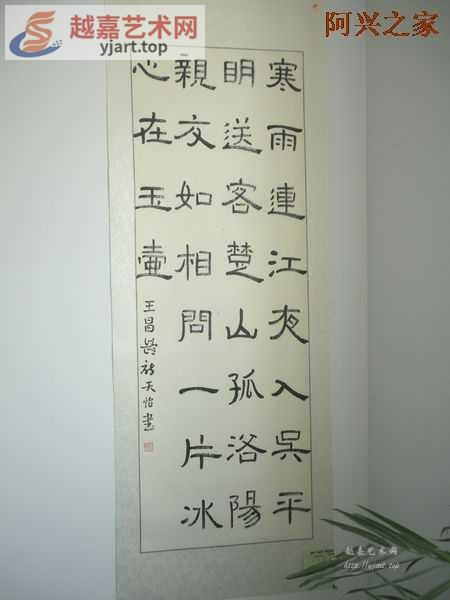 越嘉艺术网
yjart.top
阿兴之家
寒雨連江夜入吳平
明送客楚山孤洛陽
親友如相問一片冰
心在玉壺
王昌齡詩天怡書
越嘉艺术网
http://yjart.top